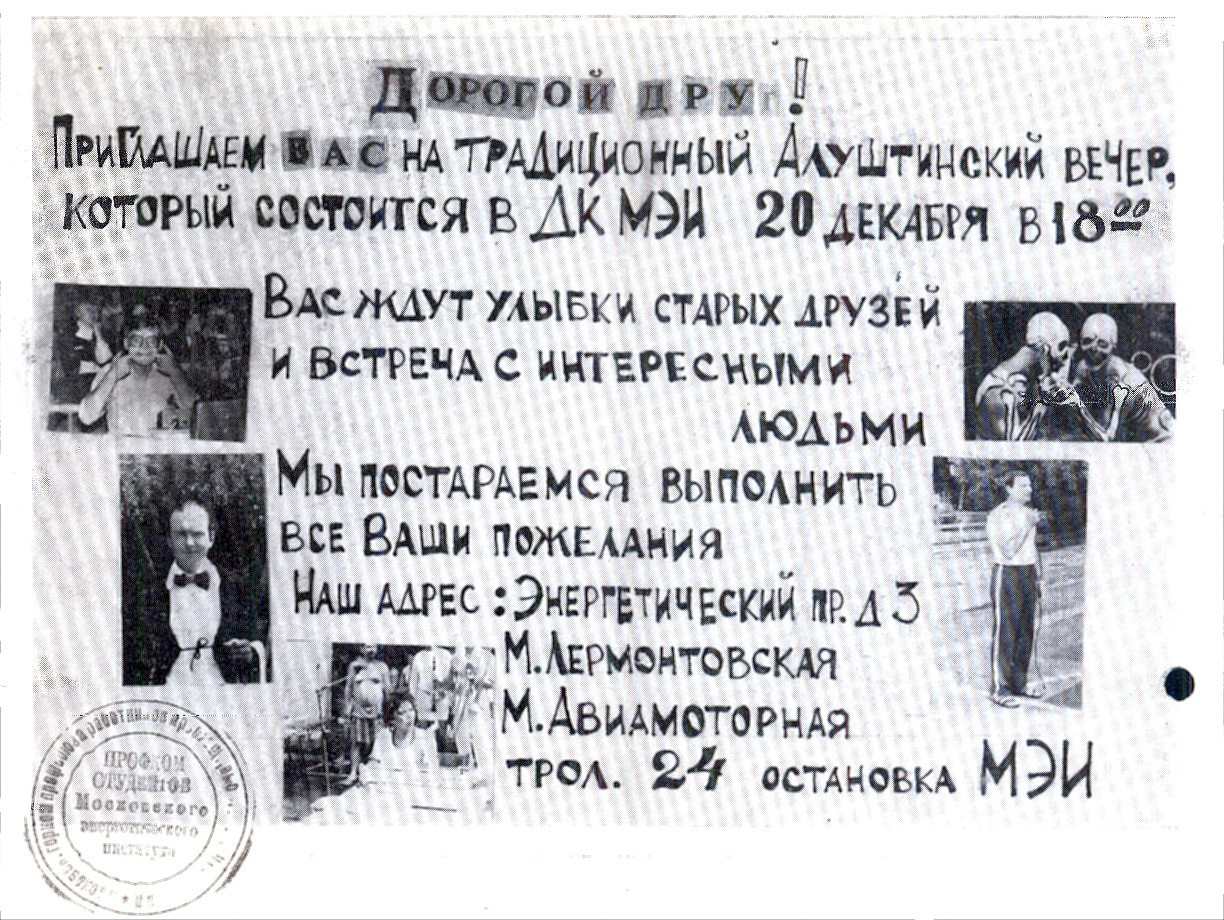 Дорогой друг!
Приглашаем Вас на традиционный Алуштинский вечер,
который состоится в ДК МЭИ 20 декабря в 18⁰⁰
Вас ждут улыбки старых друзей
и встреча с интересными
людьми
Мы постараемся выполнить
все Ваши пожелания
Наш адрес: Энергетический пр. д 3
м. Лермонтовская
м. Авиамоторная
трол. 24 остановка МЭИ
ПРОФКОМ
СТУДЕНТОВ
Московского
энергетического
института